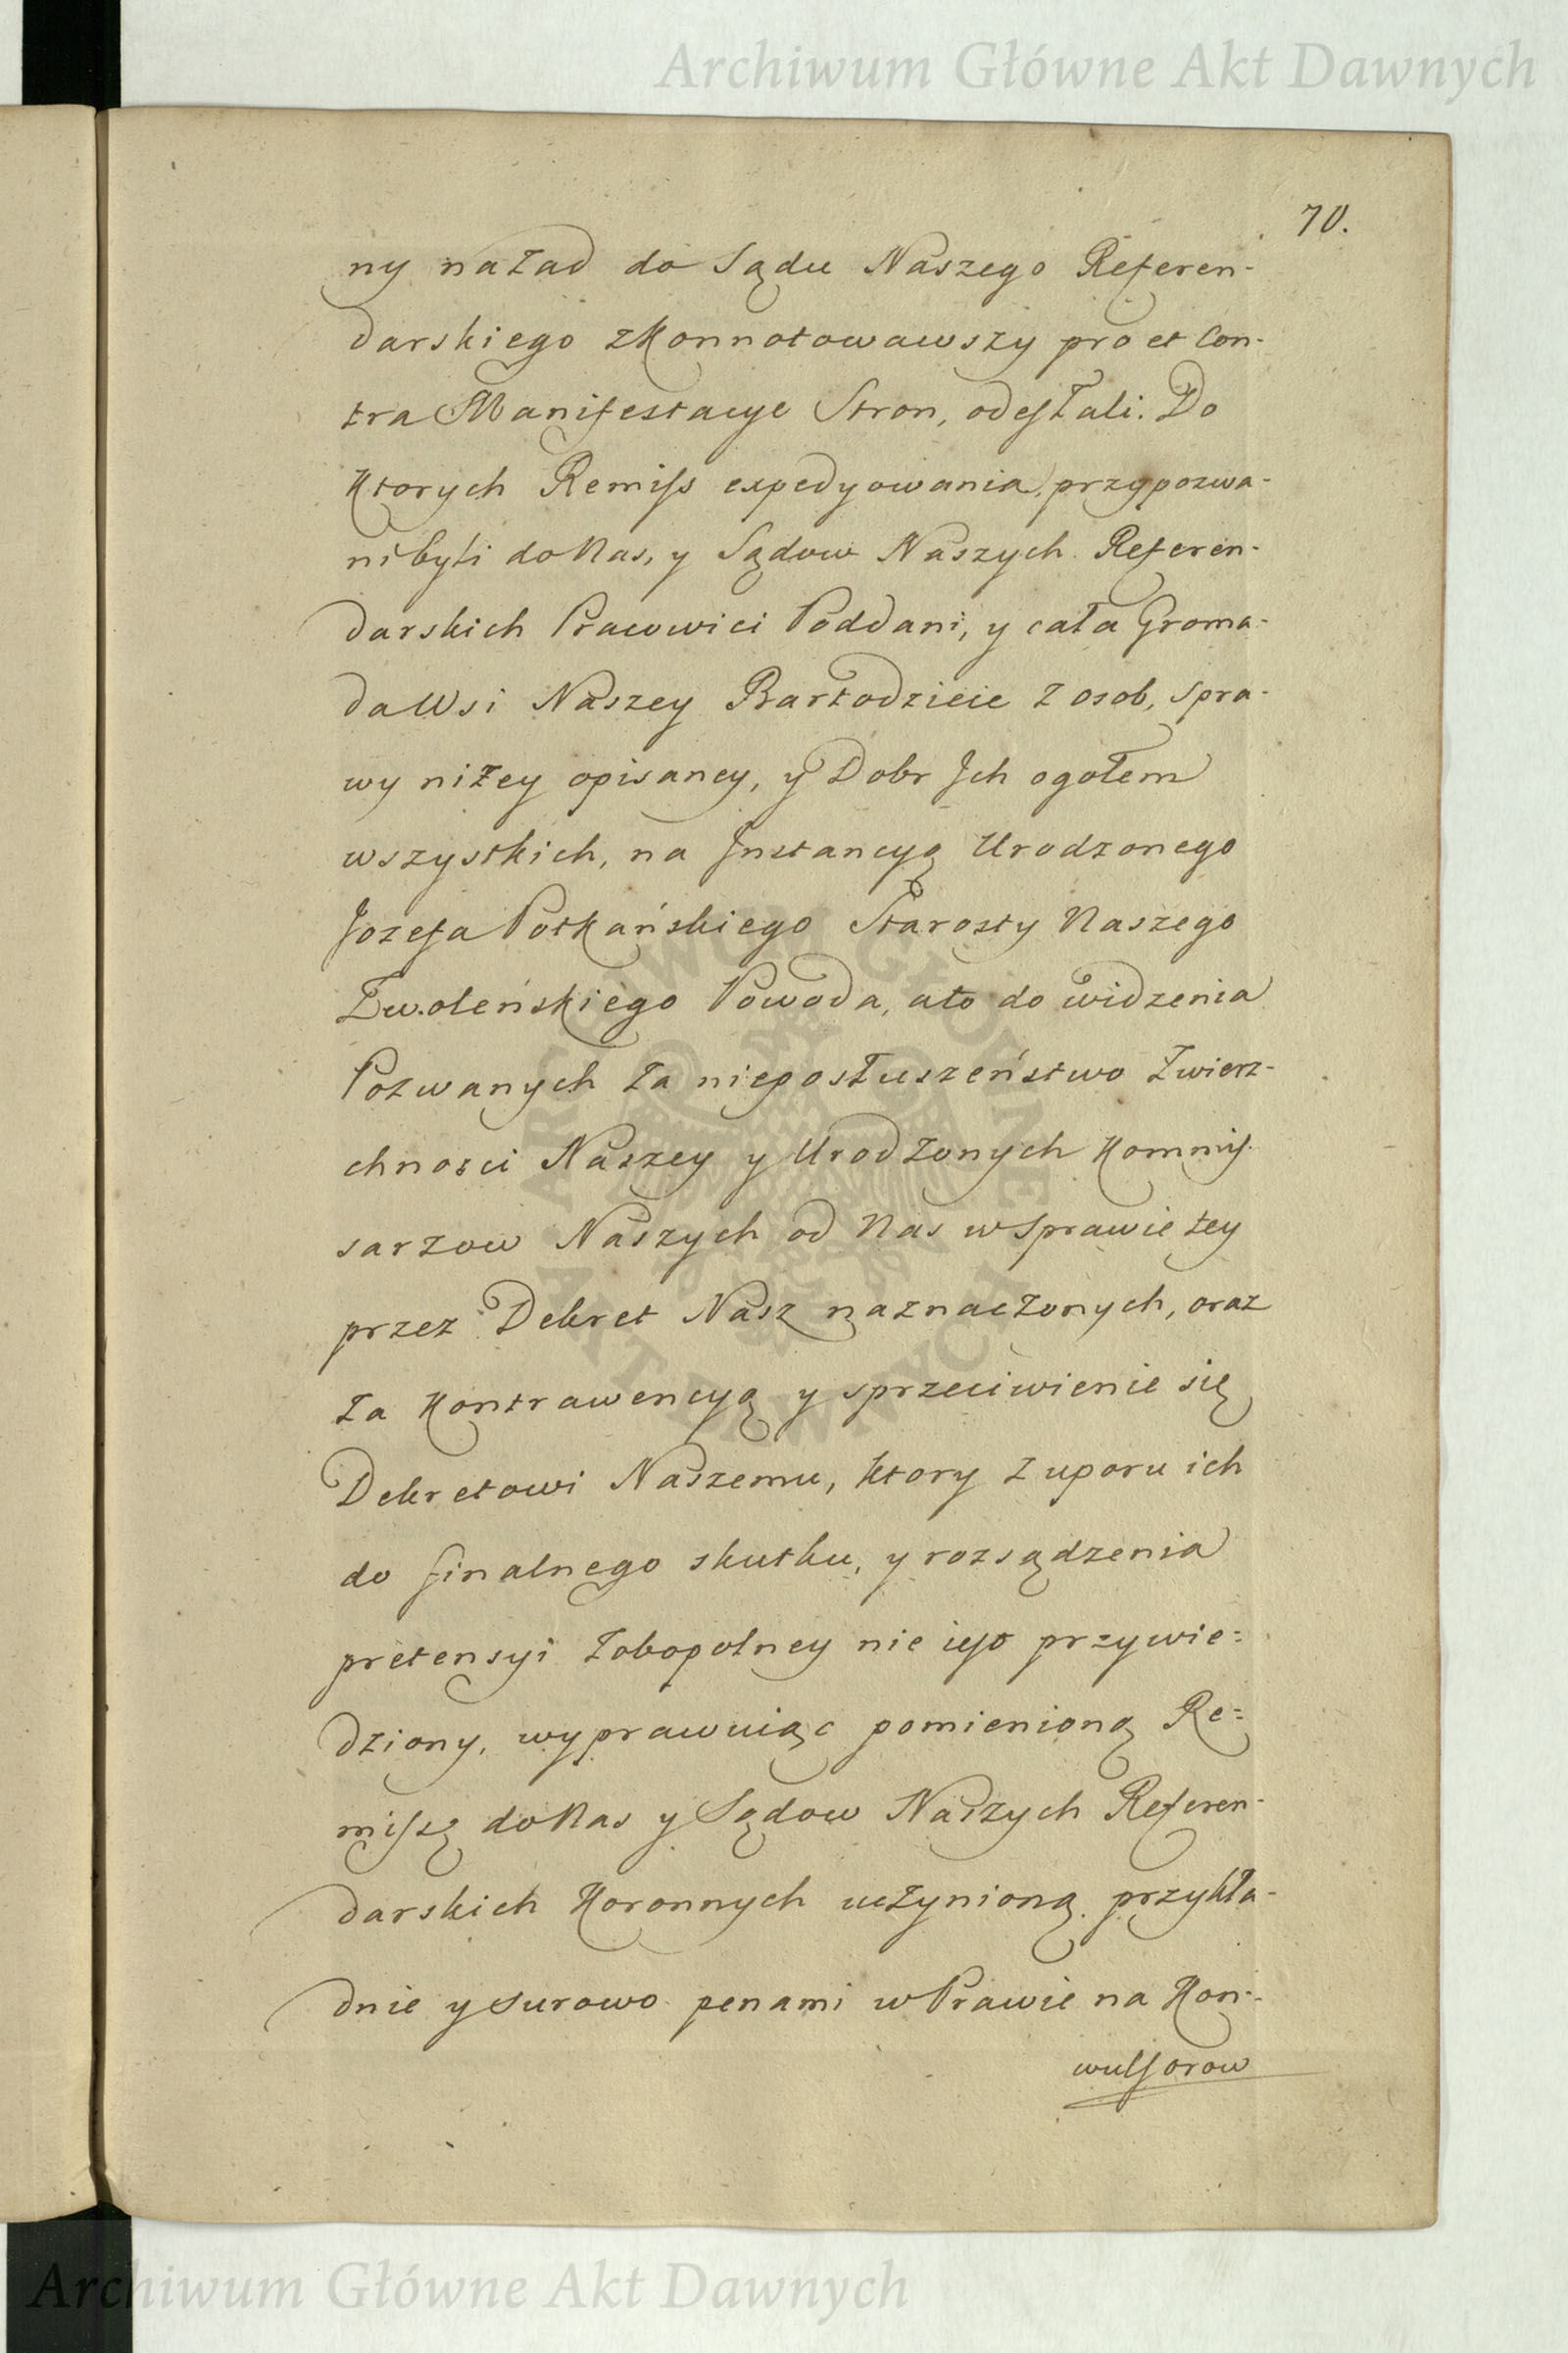 Archiwum Główne Akt Dawnych
70.
ny nazad do Sądu Naszego Referen-
darskiego zkonnotowawszy pro et Con-
tra Manifestacye Stron, odesłali. Do
ktorych Remiss expedyowania, przypozwa-
ni byli do Nas, y Sądow Naszych Referen-
darskich Pracowici Poddani, y cała Groma-
da Wsi Naszey Bartodzieie z osob, spra-
wy niżey opisaney, y Dobr Ich ogołem
wszystkich, na Instancyą Urodzonego
Jozefa Potkańskiego Starosty Naszego
Zwoleńskiego Powoda, ato do widzenia
Pozwanych za nieposłuszeństwo Zwierz-
chnosci Naszey y Urodzonych Kommis-
sarzow Naszych od Nas w Sprawie tey
przez Dekret Nasz naznaczonych, oraz
za Kontrawencyą y sprzeciwienie się
Dekretowi Naszemu, ktory z uporu ich
do finalnego skutku, y rozsądzenia
pretensyi Zobopolney nie iest przywie=
dziony, wyprawuiąc pomienioną Re=
missę do Nas y Sądow Naszych Referen-
darskich Koronnych uczynioną. przykła-
dnie y surowo penami w Prawie na Kon-
wulsorow
ARCHIWUM GŁÓWNE
AKT DAWNYCH
Archiwum Główne Akt Dawnych